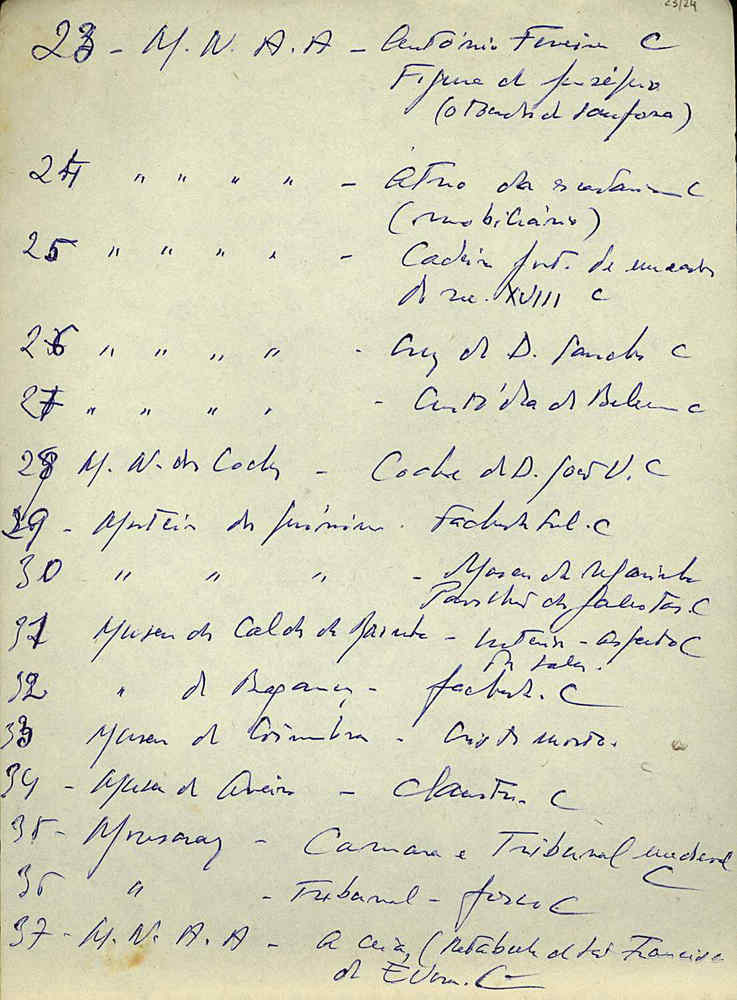 23/24
23 - M. N. A. A - António Ferreira C
Figura de presépio
(o Tocador de Sanfona)
24 " " " " - Átrio da escadaria C
(mobiliário)
25 " " " " - Cadeira port. de meados
do séc. XVIII C
26 " " " " - Cruz de D. Sancho C
27 " " " " - Custódia de Belem C
28 M. N. dos Coches - Coche de D. João V. C
29 - Mosteiro dos Jerónimos - Fachada Sul. C
30 " " " - Museu de Marinha
Pavilhão das Galeotas. C
31 Museu das Caldas da Rainha - Interior - aspecto C
da sala.
32 " de Bragança - fachada. C
33 Museu de Coimbra - Cristo morto.
C
34 - Museu de Aveiro - Claustro. C
35 - Monsaraz - Camara e Tribunal medieval
C
36 " - Tribunal - fresco C
37 - M. N. A. A - A ceia, (Retábulo de São Francisco
de Évora. C